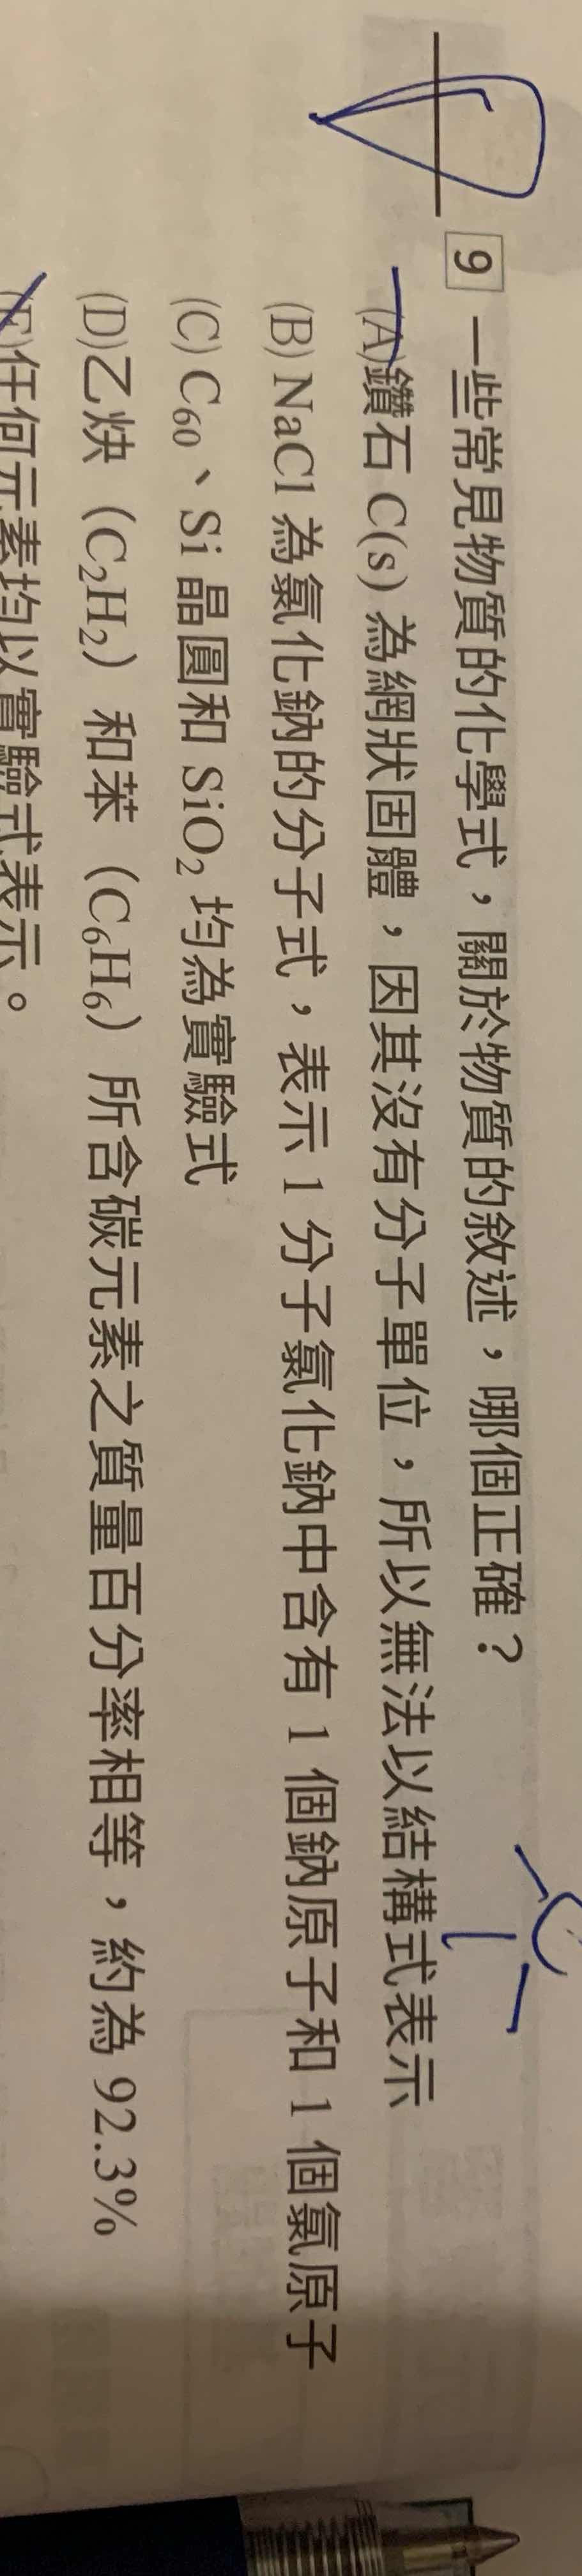 9 一些常見物質的化學式，關於物質的敘述，哪個正確？
(A)鑽石 C(s) 為網狀固體，因其沒有分子單位，所以無法以結構式表示
(B) NaCl 為氯化鈉的分子式，表示 1 分子氯化鈉中含有 1 個鈉原子和 1 個氯原子
(C) C₆₀、Si 晶圓和 SiO₂ 均為實驗式
(D)乙炔（C₂H₂）和苯（C₆H₆）所含碳元素之質量百分率相等，約為 92.3%
(E)任何元素均以實驗式表示。